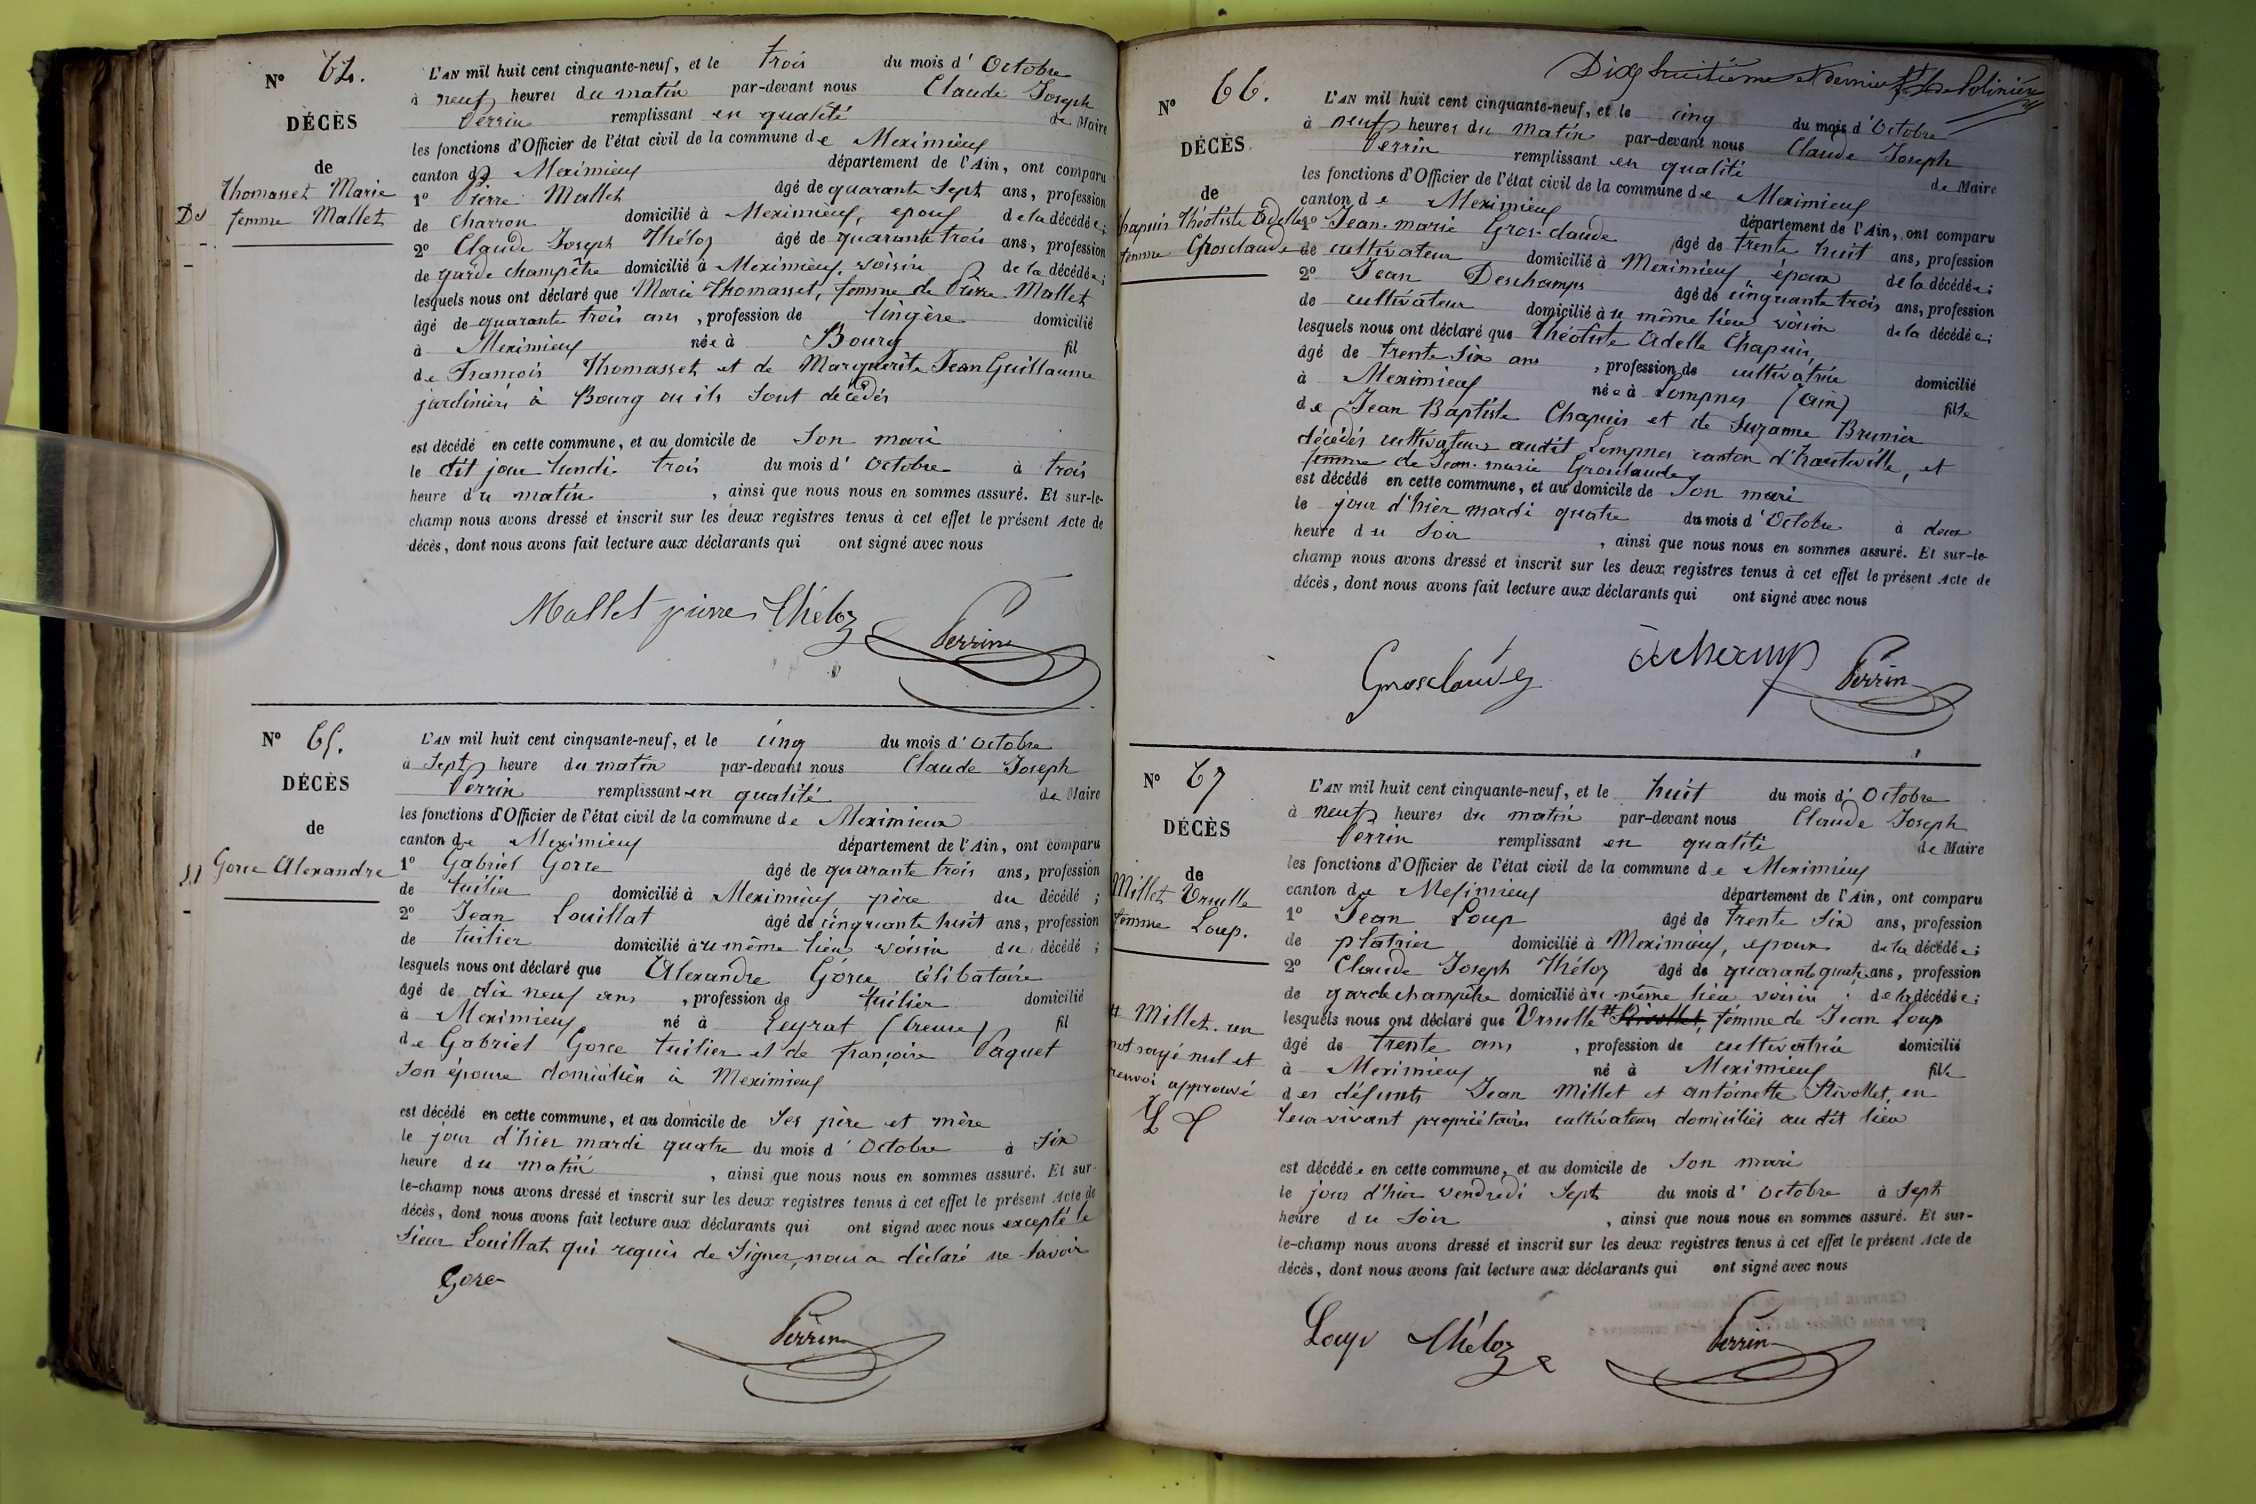 N° 64.
DÉCÈS
de
Thomasset Marie
femme Mallet
L'AN mil huit cent cinquante-neuf, et le trois du mois d'Octobre
à neuf heures du matin par-devant nous Claude Joseph
Perrin remplissant en qualité de Maire
les fonctions d'Officier de l'état civil de la commune de Meximieux
canton de Meximieux département de l'Ain, ont comparu
1° Pierre Mallet âgé de quarante sept ans, profession
de charron domicilié à Meximieux, epoux de la décédée;
2° Claude Joseph Théloz âgé de quarante trois ans, profession
de garde champêtre domicilié à Meximieux, voisin de la décédée;
lesquels nous ont déclaré que Marie Thomasset, femme de Pierre Mallet
âgé de quarante trois ans, profession de lingère domicilié
à Meximieux née à Bourg fil
de François Thomasset et de Marguerite Jean Guillaume
jardiniers à Bourg où ils sont décédés
est décédé en cette commune, et au domicile de son mari
le dit jour lundi trois du mois d'Octobre à trois
heure du matin, ainsi que nous nous en sommes assuré. Et sur-le-
champ nous avons dressé et inscrit sur les deux registres tenus à cet effet le présent Acte de
décès, dont nous avons fait lecture aux déclarants qui ont signé avec nous
Mallet pierre Théloz Perrin
N° 65.
DÉCÈS
de
Gorce Alexandre
L'AN mil huit cent cinquante-neuf, et le cinq du mois d'Octobre
à sept heure du matin par-devant nous Claude Joseph
Perrin remplissant en qualité de Maire
les fonctions d'Officier de l'état civil de la commune de Meximieux
canton de Meximieux département de l'Ain, ont comparu
1° Gabriel Gorce âgé de quarante trois ans, profession
de tuilier domicilié à Meximieux père du décédé;
2° Jean Louillat âgé de cinquante huit ans, profession
de tuilier domicilié au même lieu voisin du décédé;
lesquels nous ont déclaré que Alexandre Gorce célibataire
âgé de dix neuf ans, profession de tuilier domicilié
à Meximieux né à Leyrat (Creuse) fil
de Gabriel Gorce tuilier et de françoise Paquet
son épouse domiciliés à Meximieux
est décédé en cette commune, et au domicile de ses père et mère
le jour d'hier mardi quatre du mois d'Octobre à six
heure du matin, ainsi que nous nous en sommes assuré. Et sur-
le-champ nous avons dressé et inscrit sur les deux registres tenus à cet effet le présent Acte de
décès, dont nous avons fait lecture aux déclarants qui ont signé avec nous excepté le
sieur Louillat qui requis de signer, nous a déclaré ne savoir
Gorce
Perrin
Dix huitième et dernier
N° 66.
DÉCÈS
de
Chapuis Théotiste Adelle
femme Grosclaude
L'AN mil huit cent cinquante-neuf, et le cinq du mois d'Octobre
à neuf heures du matin par-devant nous Claude Joseph
Perrin remplissant en qualité de Maire
les fonctions d'Officier de l'état civil de la commune de Meximieux
canton de Meximieux département de l'Ain, ont comparu
1° Jean-marie Gros-claude âgé de trente huit ans, profession
de cultivateur domicilié à Meximieux époux de la décédée;
2° Jean Deschamps âgé de cinquante trois ans, profession
de cultivateur domicilié au même lieu voisin de la décédée;
lesquels nous ont déclaré que Théotiste Adelle Chapuis
âgé de trente six ans, profession de cultivatrice domicilié
à Meximieux née à Lompnes (Ain) fille
de Jean Baptiste Chapuis et de Suzanne Brunier
décédés cultivateurs audit Lompnes canton d'hauteville, et
femme de Jean-marie Grosclaude
est décédé en cette commune, et au domicile de son mari
le jour d'hier mardi quatre du mois d'Octobre à deux
heure du soir, ainsi que nous nous en sommes assuré. Et sur-le-
champ nous avons dressé et inscrit sur les deux registres tenus à cet effet le présent Acte de
décès, dont nous avons fait lecture aux déclarants qui ont signé avec nous
Grosclaude Perrin
N° 67
DÉCÈS
de
Millet Ursulle
femme Loup.
L'AN mil huit cent cinquante-neuf, et le huit du mois d'Octobre
à neuf heures du matin par-devant nous Claude Joseph
Perrin remplissant en qualité de Maire
les fonctions d'Officier de l'état civil de la commune de Meximieux
canton de Meximieux département de l'Ain, ont comparu
1° Jean Loup âgé de trente six ans, profession
de platrier domicilié à Meximieux, epoux de la décédée;
2° Claude Joseph Théloz âgé de quarante quatre ans, profession
de garde champêtre domicilié au même lieu voisin de la décédée;
lesquels nous ont déclaré que Ursulle # Rivollet, femme de Jean Loup
âgé de trente ans, profession de cultivatrice domicilié
à Meximieux né à Meximieux fille
des défunts Jean Millet et antoinette Rivollet, en
leur vivant propriétaires cultivateurs domiciliés au dit lieu
# Millet. un
mot rayé nul et
renvoi approuvé
est décédée en cette commune, et au domicile de son mari
le jour d'hier vendredi sept du mois d'Octobre à sept
heure du soir, ainsi que nous nous en sommes assuré. Et sur-
le-champ nous avons dressé et inscrit sur les deux registres tenus à cet effet le présent Acte de
décès, dont nous avons fait lecture aux déclarants qui ont signé avec nous
Loup Théloz Perrin